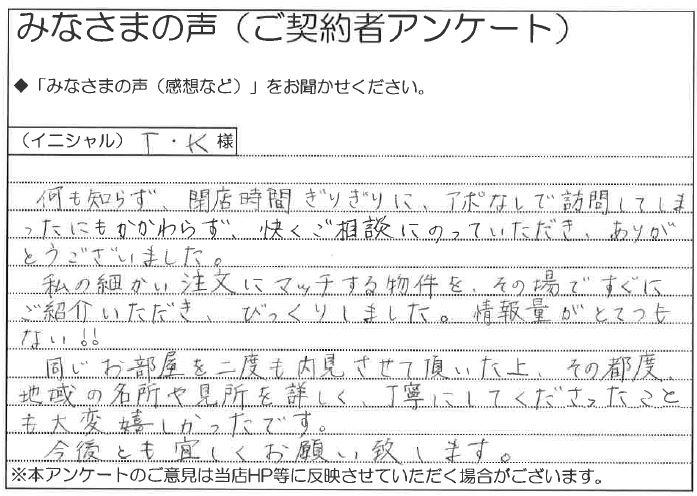 みなさまの声（ご契約者アンケート）
◆「みなさまの声（感想など）」をお聞かせください。
（イニシャル） T・K 様
何も知らず、閉店時間ぎりぎりに、アポなしで訪問してしま
ったにもかかわらず、快くご相談にのっていただき、ありが
とうございました。
私の細かい注文にマッチする物件を、その場ですぐに
ご紹介いただき、びっくりしました。情報量がとてつも
ない!!
同じお部屋を二度も内見させて頂いた上、その都度、
地域の名所や見所を詳しく丁寧にしてくださったこと
も大変嬉しかったです。
今後とも宜しくお願い致します。
※本アンケートのご意見は当店HP等に反映させていただく場合がございます。